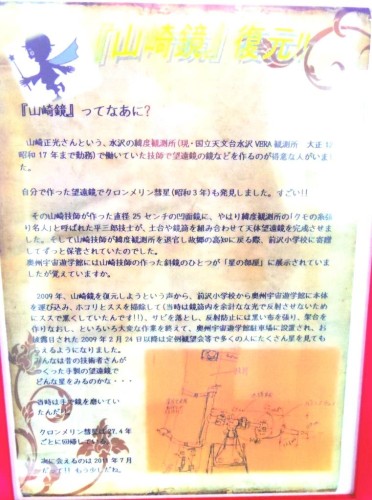 『山崎鏡』復元!!
『山崎鏡』ってなあに?
山崎正光さんという、水沢の緯度観測所(現・国立天文台水沢 VERA 観測所 大正
昭和 17 年まで勤務)で働いていた技師で望遠鏡の鏡などを作るのが得意な人がいまし
た。
自分で作った望遠鏡でクロンメリン彗星(昭和3年)も発見しました。すごい!!
その山崎技師が作った直径 25 センチの凹面鏡に、やはり緯度観測所の「クモの糸張
り名人」と呼ばれた平三郎技士が、土台や鏡筒を組み合わせて天体望遠鏡を完成さ
せました。そして山崎技師が緯度観測所を退官し故郷の高知に戻る際、前沢小学校に寄贈
してずっと保管されていたのでした。
奥州宇宙遊学館には山崎技師の作った斜鏡のひとつが「星の部屋」に展示されていま
したが覚えていますか。
2009 年、山崎鏡を復元しようという声から、前沢小学校から奥州宇宙遊学館に本体
を運び込み、ホコリとススを掃除して(当時は鏡筒内を余計なな光で反射させないため
にススで黒くしていたんです!!)、サビを落とし、反射防止には黒い布を張り、架台
を作りなおし、といろいろ大変な作業を終えて、奥州宇宙遊学館駐車場に設置され、お
披露目された 2009 年 2 月 24 日以降は定例観望会等で多くの人にたくさん星を見ても
らえるようになりました。
みんなは昔の技術者さんが
つくった手製の望遠鏡で
どんな星をみるのかな・・・
当時は手で鏡を磨いてい
たんだ
クロンメリン彗星は27.4 年
ごとに回帰している
次に会えるのは 2011 年 7 月
だって!! もう少しだね。